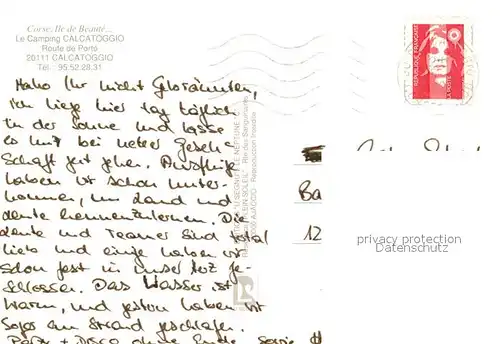 Corse, Ile de Beauté...
Le Camping CALCATOGGIO
Route de Porto
20111 CALCATOGGIO
Tél. : 95.52.28.31
Hallo Ihr nicht Gebräunten,
ich liege hier tag täglich
in der Sonne und lasse
es mir bei netter Gesell-
schaft gut gehen. Ausflüge
haben wir schon unter-
nommen, um Land und
Leute kennenzulernen. Die
Leute und Teamer sind total
lieb und einige haben wir
schon fest in unser Herz ge-
schlossen. Das Wasser ist
warm, und gestern haben wir
sogar am Strand geschlafen.
Party + Disco ohne Ende, sowie
Ba
12
REPUBLIQUE FRANÇAISE
LA POSTE
privacy protection
Datenschutz